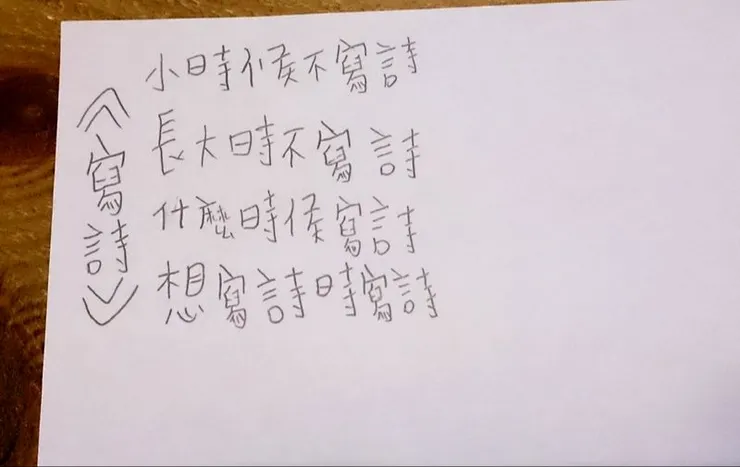 《寫詩》
小時候不寫詩
長大時不寫詩
什麼時侯寫詩
想寫詩時寫詩